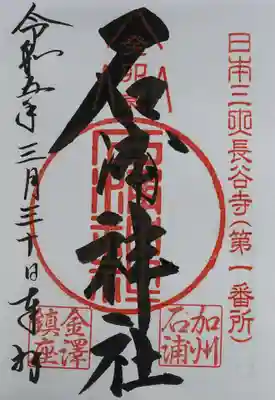 日本三長谷寺(第一番所)
石浦神社
加州
石浦
金澤
鎮座
令和五年三月三十日奉拝